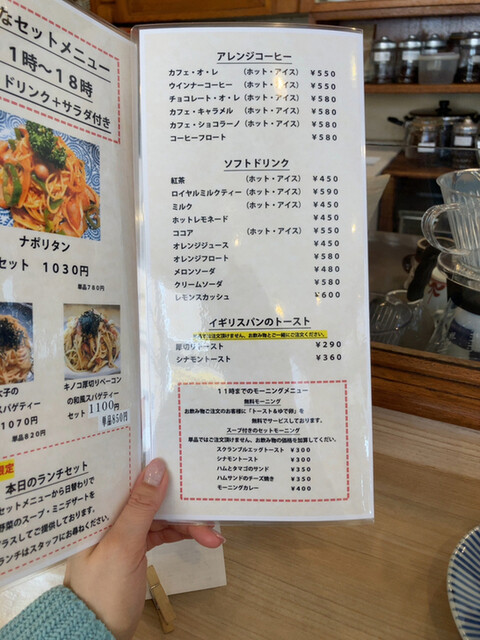 なセットメニュー
11時〜18時
ドリンク+サラダ付き
ナポリタン
セット 1030円
単品780円
スパゲティー
1070円
単品820円
キノコ厚切りベーコン
の和風スパゲティー
セット 1100円
単品850円
限定
本日のランチセット
セットメニューから日替わりで
野菜のスープ・ミニデザートを
プラスしてご提供しております。
ランチはスタッフにお尋ねください。
アレンジコーヒー
カフェ・オ・レ (ホット・アイス) ¥550
ウインナーコーヒー (ホット・アイス) ¥550
チョコレート・オ・レ (ホット・アイス) ¥580
カフェ・キャラメル (ホット・アイス) ¥580
カフェ・ショコラーノ (ホット・アイス) ¥580
コーヒーフロート ¥580
ソフトドリンク
紅茶 (ホット・アイス) ¥450
ロイヤルミルクティー (ホット・アイス) ¥590
ミルク (ホット・アイス) ¥450
ホットレモネード ¥450
ココア (ホット・アイス) ¥550
オレンジジュース ¥450
オレンジフロート ¥580
メロンソーダ ¥480
クリームソーダ ¥580
レモンスカッシュ ¥600
イギリスパンのトースト
単品では注文頂けません。お飲み物とご一緒にご注文ください。
厚切りトースト ¥290
シナモントースト ¥360
11時までのモーニングメニュー
無料モーニング
お飲み物ご注文のお客様に「トースト&ゆで卵」を
無料でサービスしております。
スープ付きのセットモーニング
単品ではご注文頂けません、お飲み物の価格を加算してください。
スクランブルエッグトースト ¥300
シナモントースト ¥300
ハムとタマゴのサンド ¥350
ハムサンドのチーズ焼き ¥350
モーニングカレー ¥400